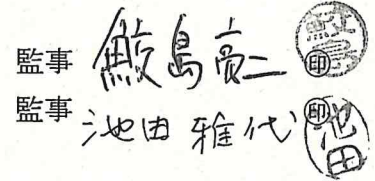 監事 鮫島亮二 ㊞
監事 池田雅代 ㊞ 池田